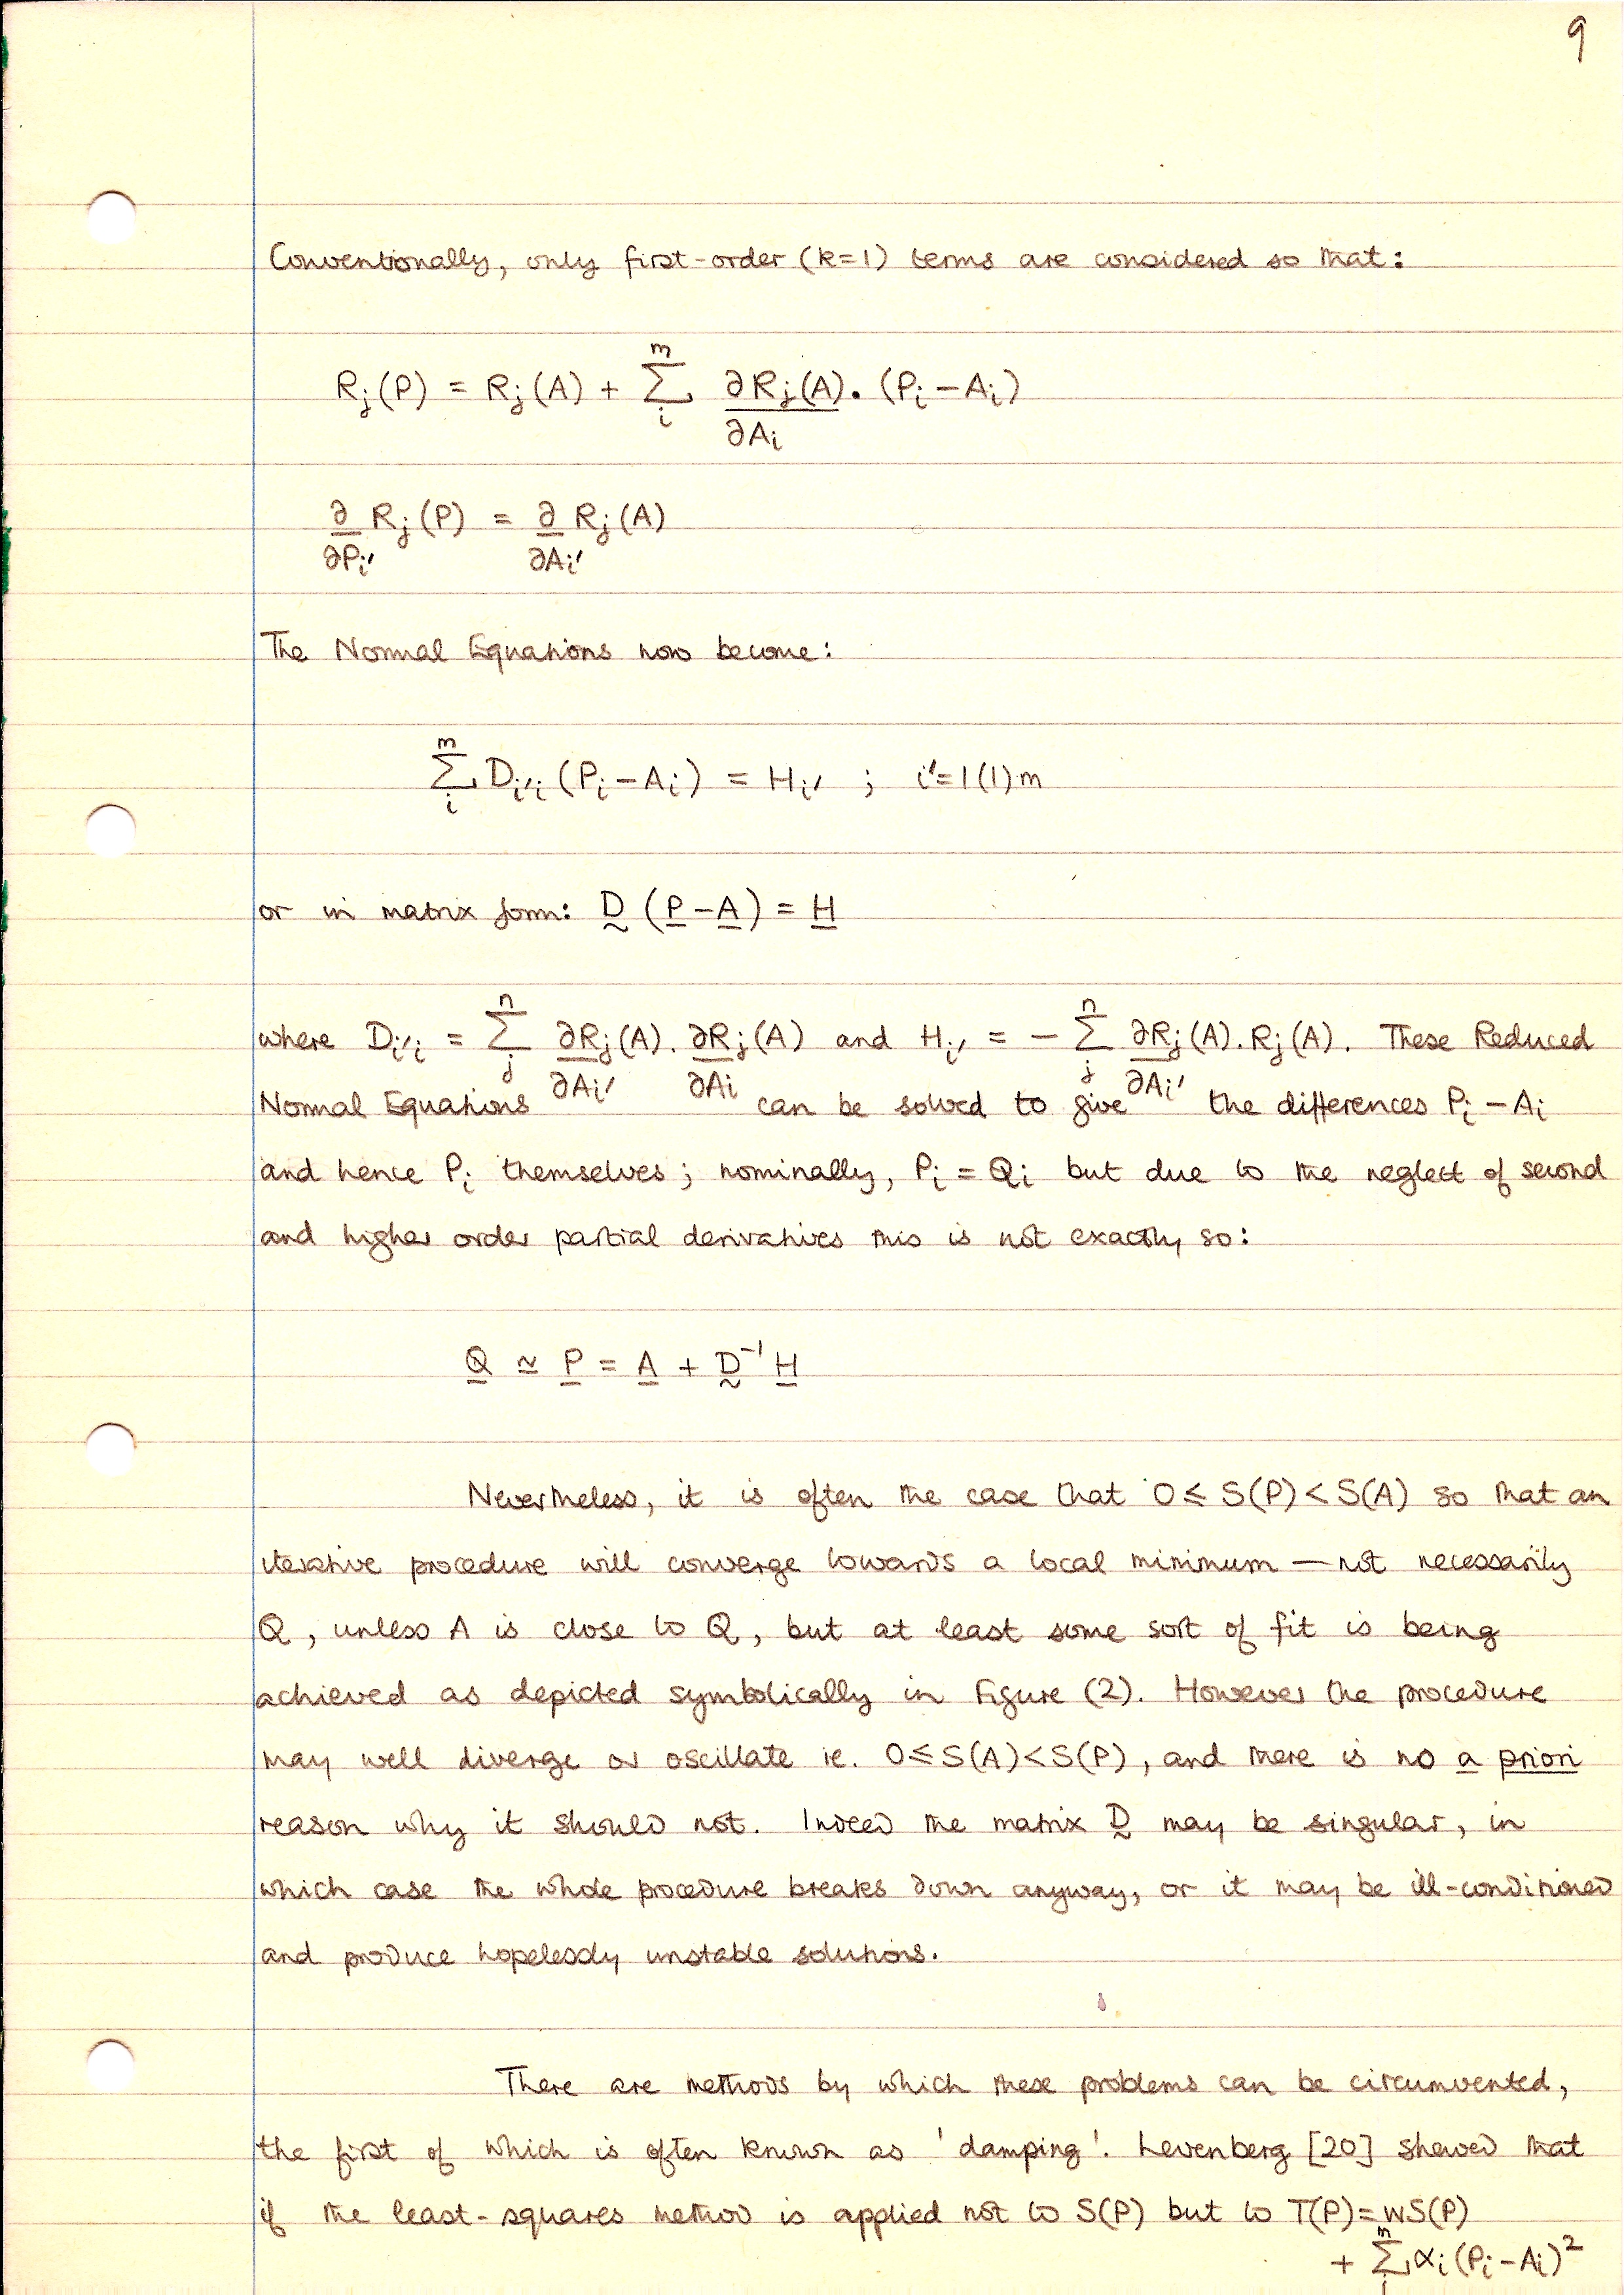 9
Conventionally, only first-order (k=1) terms are considered so that:
R_j(P) = R_j(A) + \sum_i^m \frac{∂R_j(A)}{∂A_i} . (P_i - A_i)
\frac{∂}{∂P_{i'}} R_j(P) = \frac{∂}{∂A_{i'}} R_j(A)
The Normal Equations now become:
\sum_i^m D_{i'i} (P_i - A_i) = H_{i'} ; i'=1(1)m
or in matrix form: D (P - A) = H
where D_{i'i} = \sum_j^n \frac{∂R_j(A)}{∂A_{i'}} . \frac{∂R_j(A)}{∂A_i} and H_{i'} = - \sum_j^n \frac{∂R_j(A)}{∂A_{i'}} . R_j(A). These Reduced
Normal Equations can be solved to give the differences P_i - A_i
and hence P_i themselves; nominally, P_i = Q_i but due to the neglect of second
and higher order partial derivatives this is not exactly so:
Q ≃ P = A + D^{-1} H
Nevertheless, it is often the case that 0 ≤ S(P) < S(A) so that an
iterative procedure will converge towards a local minimum — not necessarily
Q, unless A is close to Q, but at least some sort of fit is being
achieved as depicted symbolically in Figure (2). However the procedure
may well diverge or oscillate ie. 0 ≤ S(A) < S(P), and there is no a priori
reason why it should not. Indeed the matrix D may be singular, in
which case the whole procedure breaks down anyway, or it may be ill-conditioned
and produce hopelessly unstable solutions.
There are methods by which these problems can be circumvented,
the first of which is often known as 'damping'. Levenberg [20] shewed that
if the least-squares method is applied not to S(P) but to T(P) = wS(P)
+ \sum_i^m α_i (P_i - A_i)^2